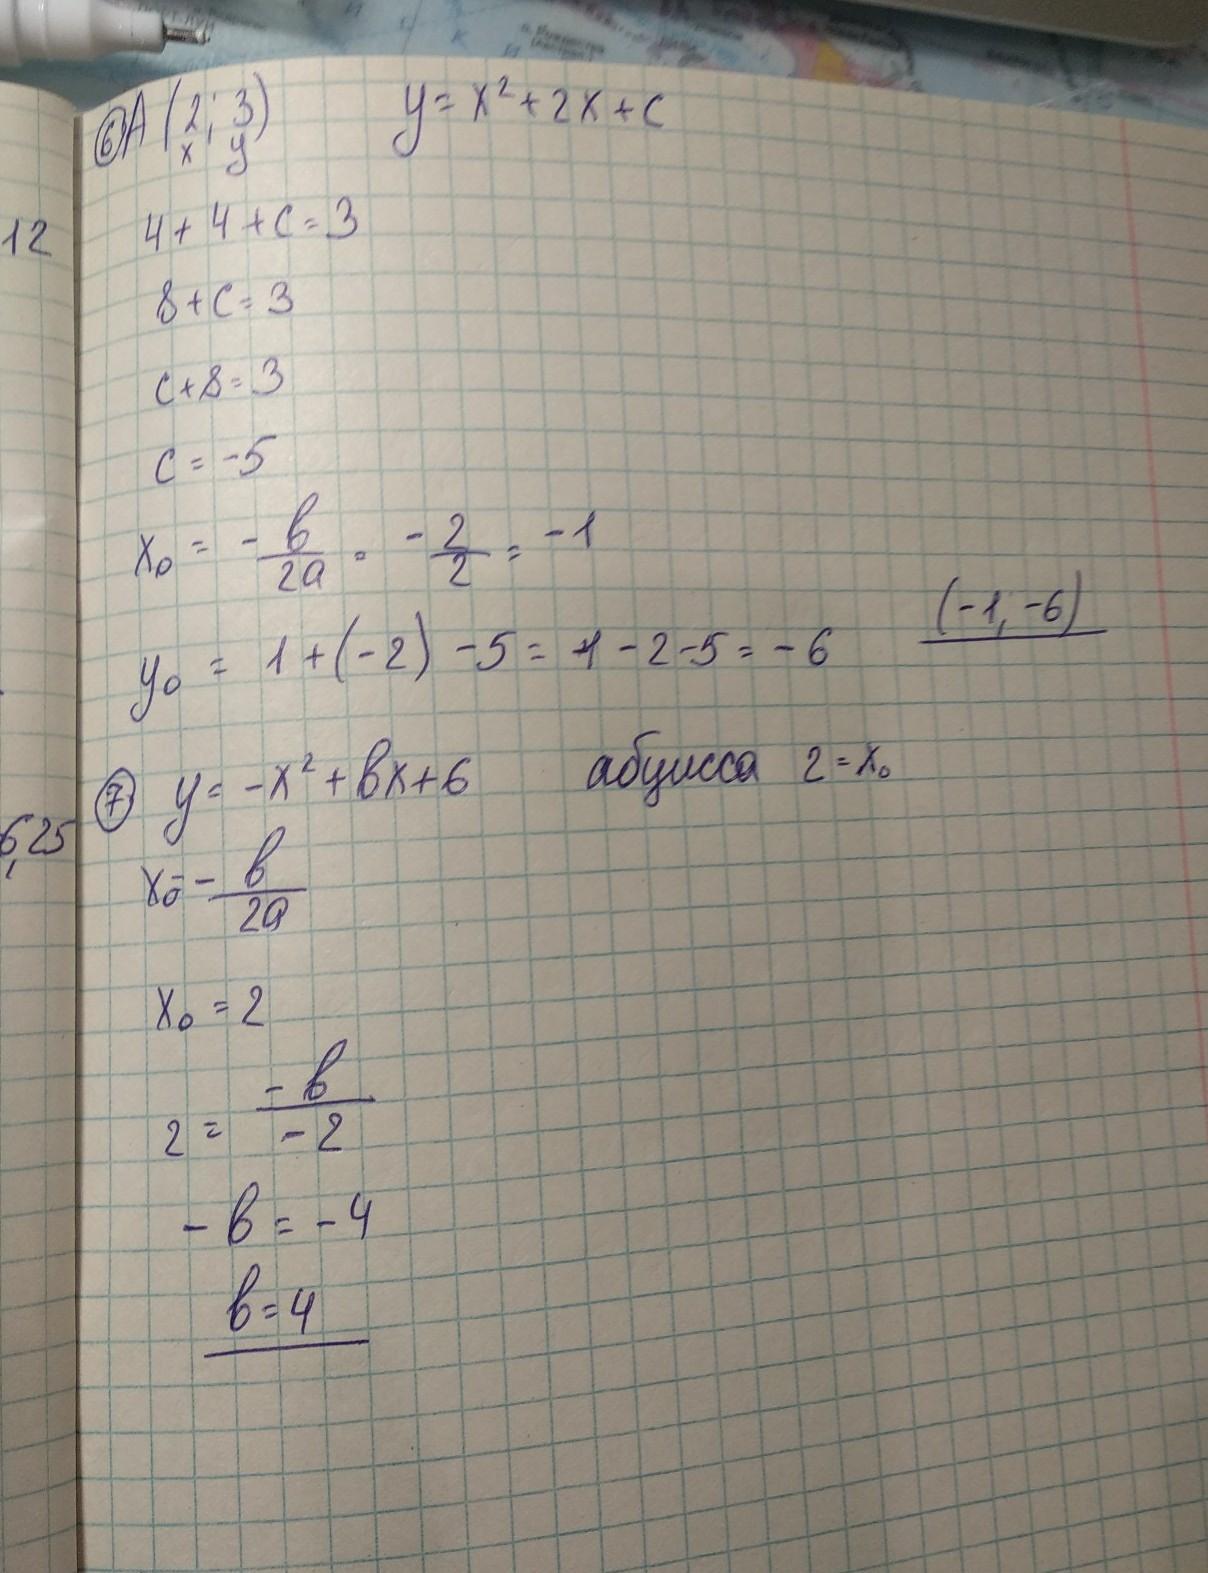 12
6,25
⑥ A (2; 3) y = x² + 2x + c
x y
4 + 4 + c = 3
8 + c = 3
c + 8 = 3
c = -5
x₀ = - в/2a = - 2/2 = -1
y₀ = 1 + (-2) - 5 = 1 - 2 - 5 = -6 (-1; -6)
⑦ y = -x² + вx + 6 абцисса 2 = x₀
x₀ = - в/2a
x₀ = 2
2 = -в/-2
- в = -4
в = 4